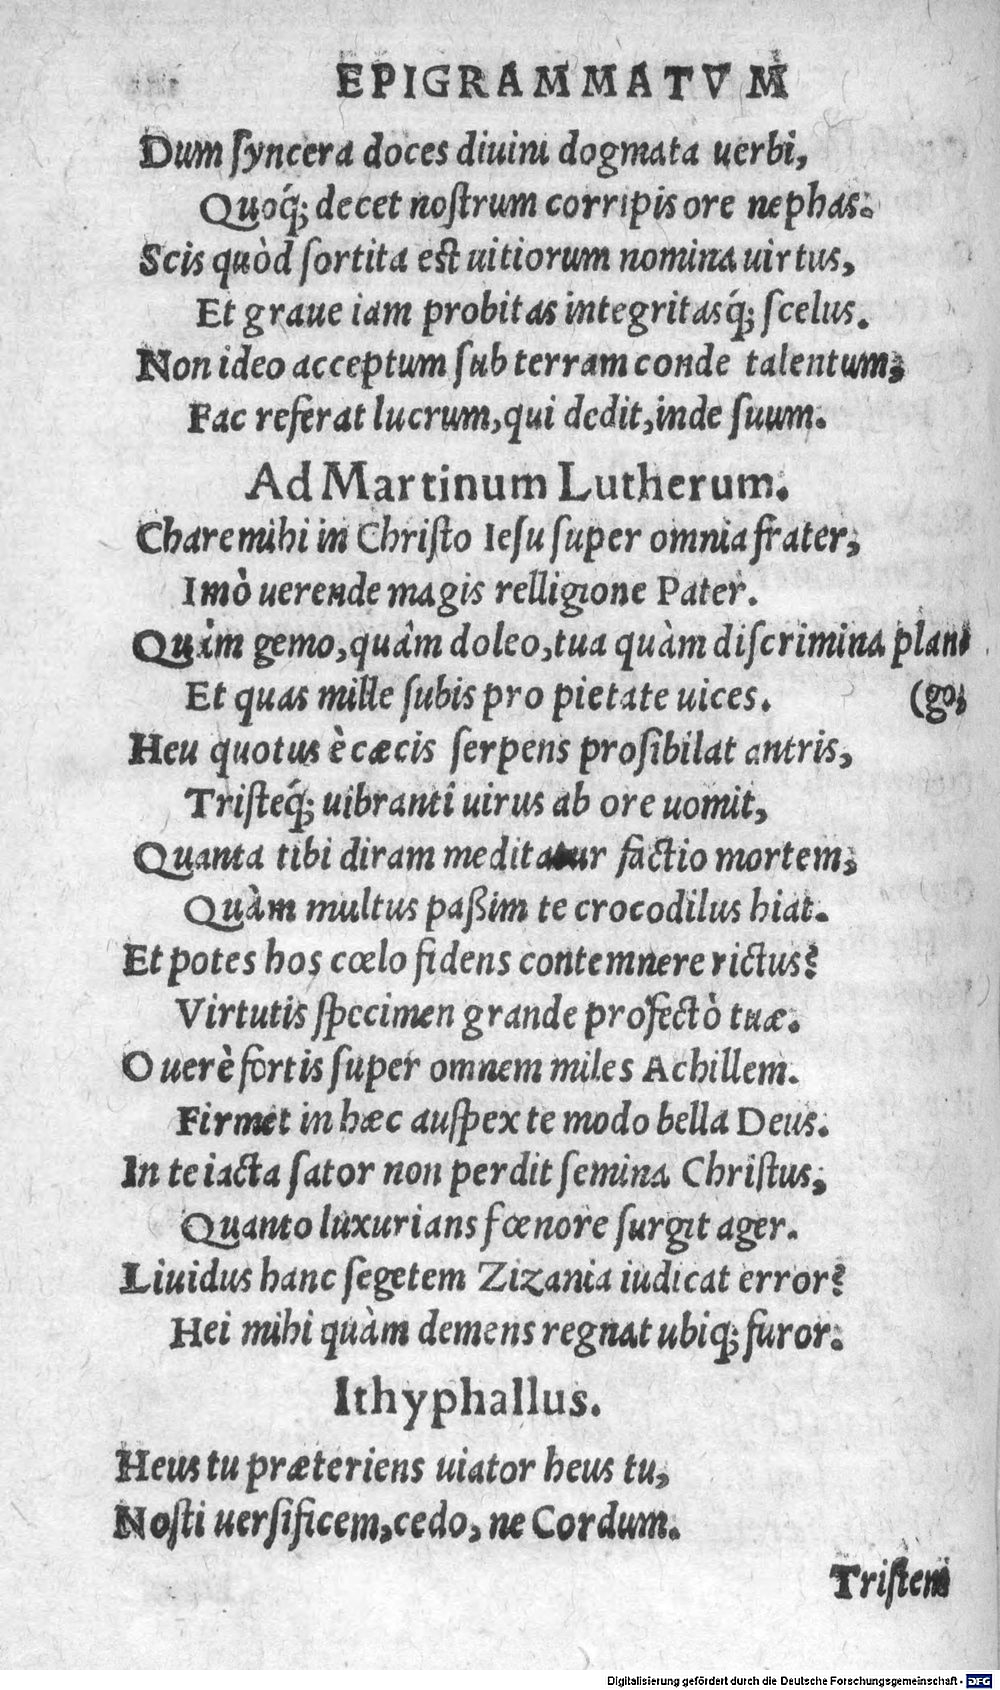 EPIGRAMMATVM
Dum ſyncera doces diuini dogmata uerbi,
Quoq́; decet noſtrum corripis ore nephas.
Scis quòd ſortita eſt uitiorum nomina uirtus,
Et graue iam probitas integritasq́; ſcelus.
Non ideo acceptum ſub terram conde talentum;
Fac referat lucrum, qui dedit, inde ſuum.
Ad Martinum Lutherum.
Chare mihi in Chriſto Ieſu ſuper omnia frater,
Imò uerende magis relligione Pater.
Quàm gemo, quàm doleo, tua quàm diſcrimina plan
Et quas mille ſubis pro pietate uices. (go,
Heu quotus è cæcis ſerpens proſibilat antris,
Triſteq́; uibranti uirus ab ore uomit,
Quanta tibi diram meditatur factio mortem,
Quàm multus paßim te crocodilus hiat.
Et potes hos cœlo fidens contemnere rictus?
Virtutis ſpecimen grande profectò tuæ.
O uerè fortis ſuper omnem miles Achillem.
Firmet in hæc auſpex te modo bella Deus.
In te iacta ſator non perdit ſemina Chriſtus,
Quanto luxurians fœnore ſurgit ager.
Liuidus hanc ſegetem Zizania iudicat error?
Hei mihi quàm demens regnat ubiq; furor.
Ithyphallus.
Heus tu præteriens uiator heus tu,
Noſti uerſificem, cedo, ne Cordum.
Triſtem
Digitalisierung gefördert durch die Deutsche Forschungsgemeinschaft - DFG